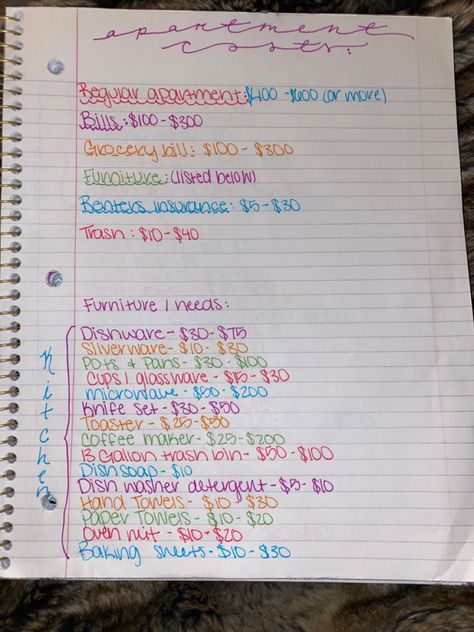 apartment
costs:
Regular apartment: $400 - $600 (or more)
Bills: $100 - $300
Grocery bill: $100 - $300
Furniture: (listed below)
Renters insurance: $5 - $30
Trash: $10 - $40
Furniture / needs:
Kitchen
Dishware - $30 - $75
Silverware - $10 - $30
Pots & Pans - $30 - $100
Cups / glassware - $15 - $30
microwave - $50 - $200
Knife set - $30 - $50
Toaster - $25 - $50
Coffee maker - $25 - $200
13 Gallon trash bin - $50 - $100
Dish soap - $10
Dish washer detergent - $5 - $10
Hand Towels - $10 - $30
Paper Towels - $10 - $20
Oven mit - $10 - $20
Baking sheets - $10 - $30